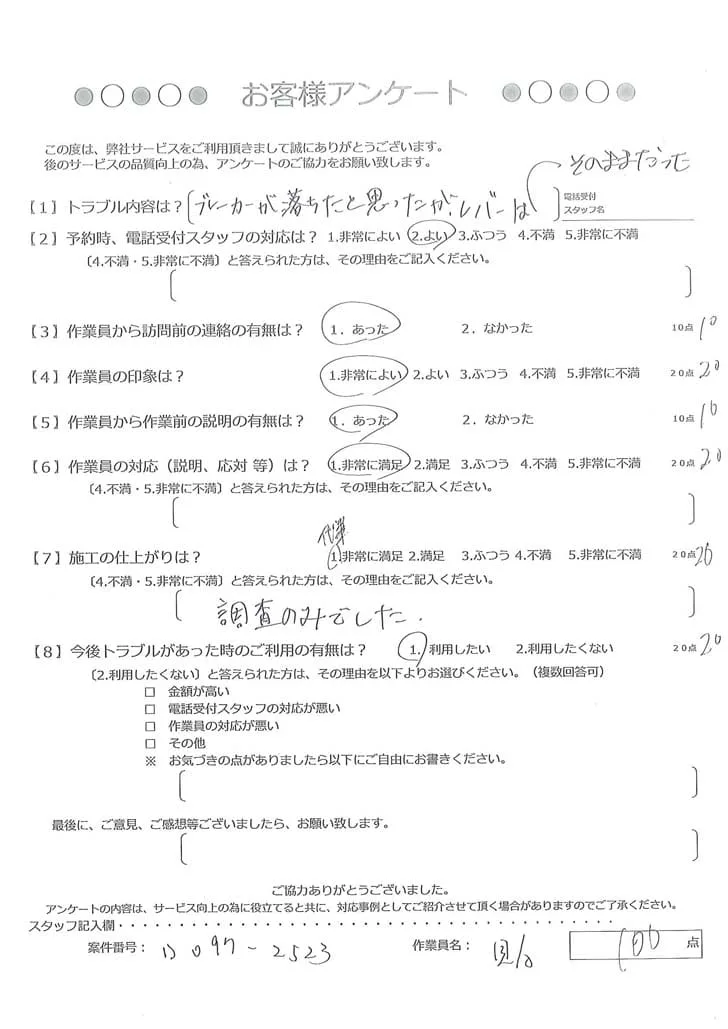 お客様アンケート
この度は、弊社サービスをご利用頂きまして誠にありがとうございます。
後のサービスの品質向上の為、アンケートのご協力をお願い致します。
そのままだった
【1】トラブル内容は？〔ブレーカーが落ちたと思ったが、レバーは〕電話受付スタッフ名
【2】予約時、電話受付スタッフの対応は？ 1.非常によい 2.よい 3.ふつう 4.不満 5.非常に不満
〔4.不満・5.非常に不満〕と答えられた方は、その理由をご記入ください。
【3】作業員から訪問前の連絡の有無は？ 1．あった 2．なかった 10点 10
【4】作業員の印象は？ 1.非常によい 2.よい 3.ふつう 4.不満 5.非常に不満 20点 20
【5】作業員から作業前の説明の有無は？ 1．あった 2．なかった 10点 10
【6】作業員の対応（説明、応対 等）は？ 1.非常に満足 2.満足 3.ふつう 4.不満 5.非常に不満 20点 20
〔4.不満・5.非常に不満〕と答えられた方は、その理由をご記入ください。
【7】施工の仕上がりは？ 1.非常に満足 2.満足 3.ふつう 4.不満 5.非常に不満 20点 20
〔4.不満・5.非常に不満〕と答えられた方は、その理由をご記入ください。
調査のみでした.
【8】今後トラブルがあった時のご利用の有無は？ 1.利用したい 2.利用したくない 20点 20
〔2.利用したくない〕と答えられた方は、その理由を以下よりお選びください。（複数回答可）
□ 金額が高い
□ 電話受付スタッフの対応が悪い
□ 作業員の対応が悪い
□ その他
※ お気づきの点がありましたら以下にご自由にお書きください。
最後に、ご意見、ご感想等ございましたら、お願い致します。
ご協力ありがとうございました。
アンケートの内容は、サービス向上の為に役立てると共に、対応事例としてご紹介させて頂く場合がありますのでご了承ください。
スタッフ記入欄・・・・・・・・・・・・・・・・・・・・・・・・・・・・・・・・・・・・
案件番号： 097-2523 作業員名： 100 点